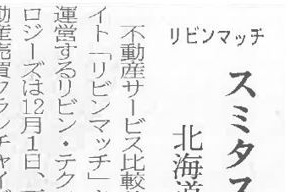 リビンマッチ
スミタス
北海道
不動産サービス比較
イト「リビンマッチ」
運営するリビン・テク
ロジーズは12月1日、
動産売買フランチャイ